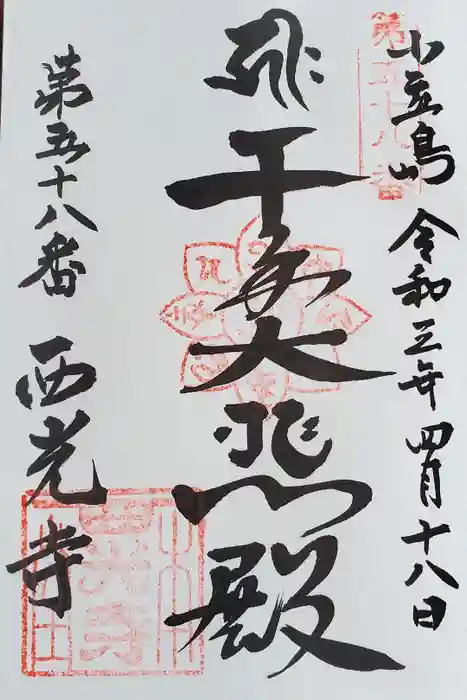 小豆島 令和三年四月十八日
第五十八番
千手大悲殿
第五十八番
西光寺